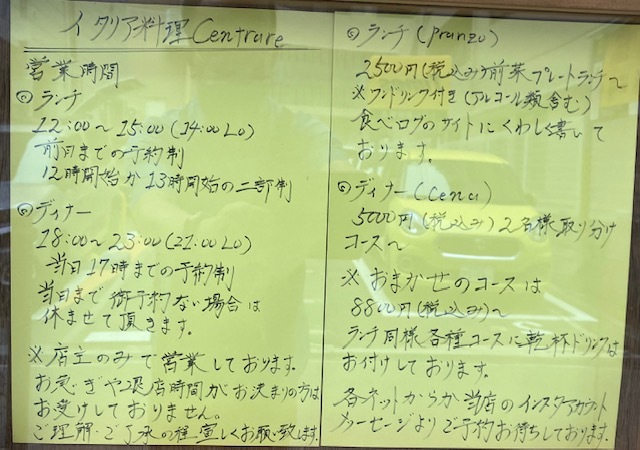 イタリア料理 Centrare
営業時間
◎ランチ
12:00〜15:00(14:00 LO)
前日までの予約制
12時開始か13時開始の二部制
◎ディナー
18:00〜23:00(21:00 LO)
当日17時までの予約制
当日まで御予約ない場合は
休ませて頂きます。
※店主のみで営業しております。
お急ぎや退店時間がお決まりの方は
お受けしておりません。
ご理解・ご了承の程宜しくお願い致します。
◎ランチ(pranzo)
2500円(税込み)前菜プレートランチ〜
※ワンドリンク付き(アルコール類含む)
食べログのサイトにくわしく書いて
おります。
◎ディナー(cena)
5000円(税込み)2名様取り分け
コース〜
※おまかせのコースは
8800円(税込み)〜
ランチ同様各種コースに乾杯ドリンクは
お付けしております。
各ネットからか当店のインスタアカウント
メッセージよりご予約お待ちしております。